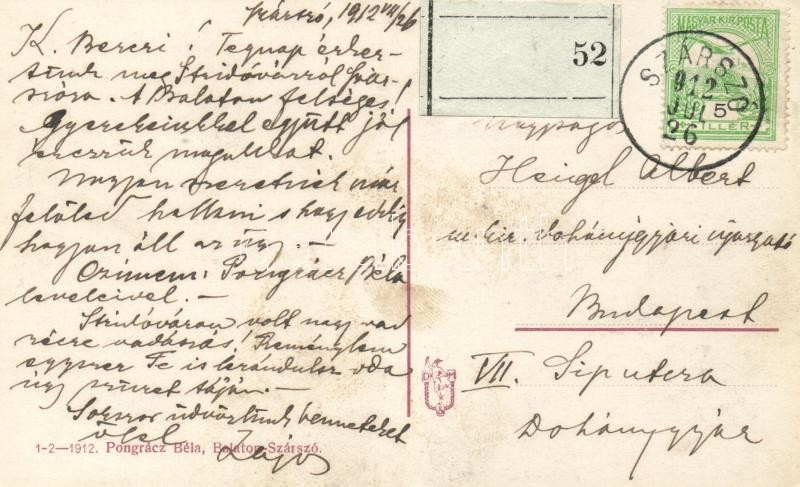 Szárszó, 1912 VII/26
K. Berczi! Tegnap érkez-
tünk meg Stridóvárról Szár-
szóra. A Balaton felséges!
Gyerekeinkkel együtt jól
érezzük magunkat.
Nagyon szeretnék már
felőled hallani s hogy eddig
hogyan áll az ügy. —
Czímem: Pongrácz Béla
leveleivel. —
Stridóváron volt nagy vad
vadászás! Reménylem
egyszer Te is lerándulsz oda
úgy szüret táján. —
Sokszor üdvözlünk benneteket
ölel Lajos
1-2—1912. Pongrácz Béla, Balaton-Szárszó.
52
MAGYAR KIR. POSTA
5
FILLÉR
SZÁRSZÓ
912
JUL
26
Nagyságos
Heigel Albert
m. kir. dohánygyári
Budapest
VII. Sip utcza
Dohánygyár
D M